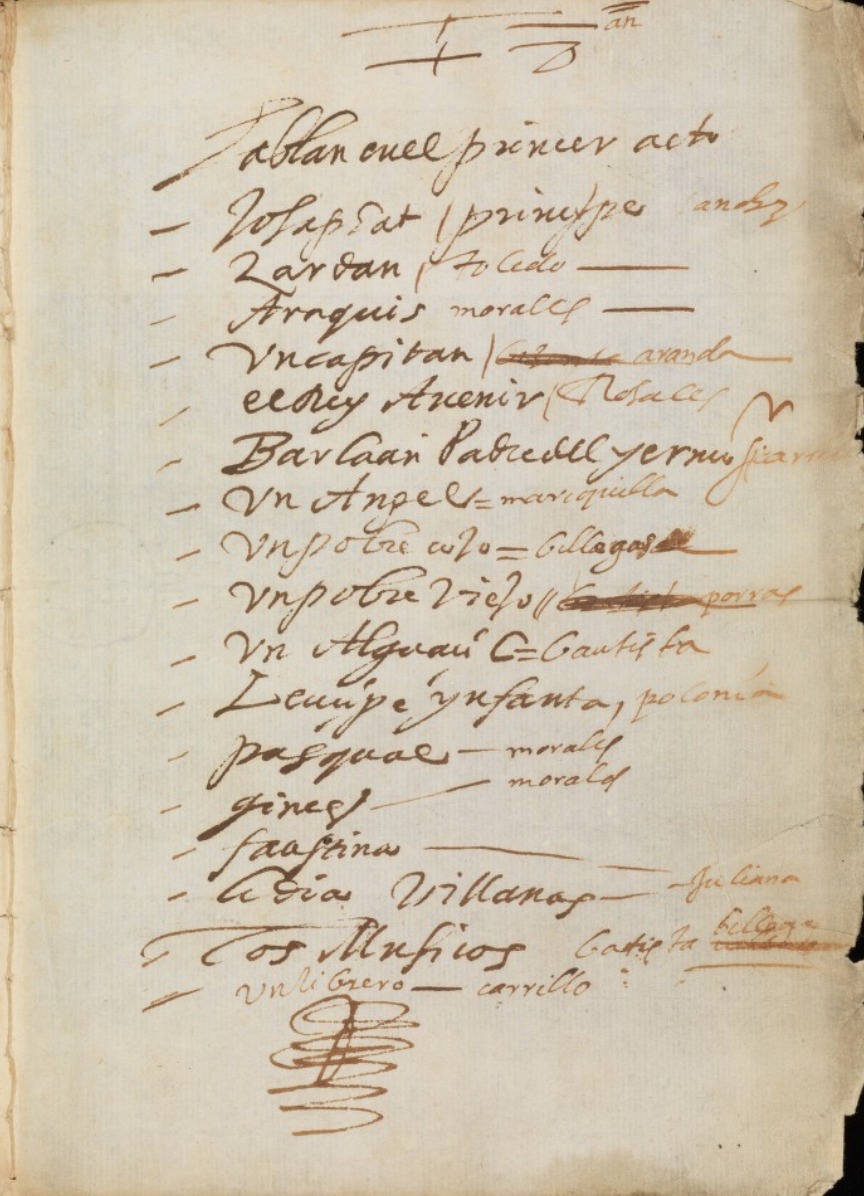 an
hablan en el primer acto
Josaphat / principe
Zardan / toledo
Araquis morales
Vn capitan / aranda
el Rey Auenir / Rosales
Barlaan Padre del yermo
Vn Angel = mariquilla
Vn pobre cojo = billegas
Vn pobre viejo // porras
Vn Alguacil = bautista
Leucipe ynfanta, polonia
pasqual — morales
gines — morales
faustina
lidia Villanas — Juliana
Dos Musicos batista billegas
Vn librero — carrillo